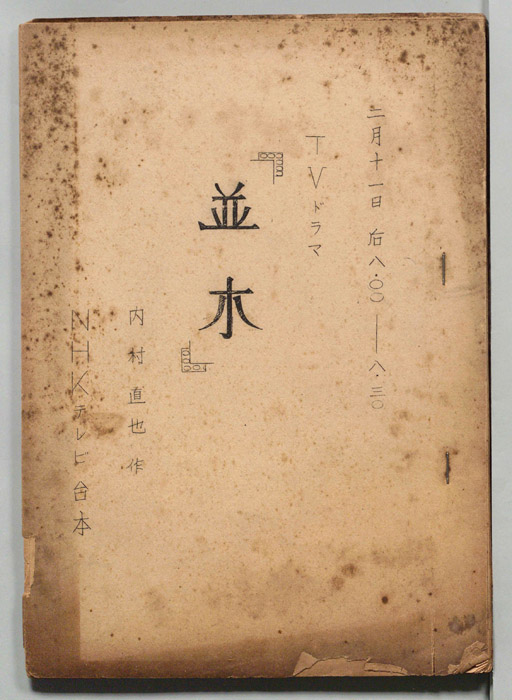 二月十一日 后八.〇〇―八.三〇
TVドラマ
『並木』
内村直也 作
NHKテレビ台本